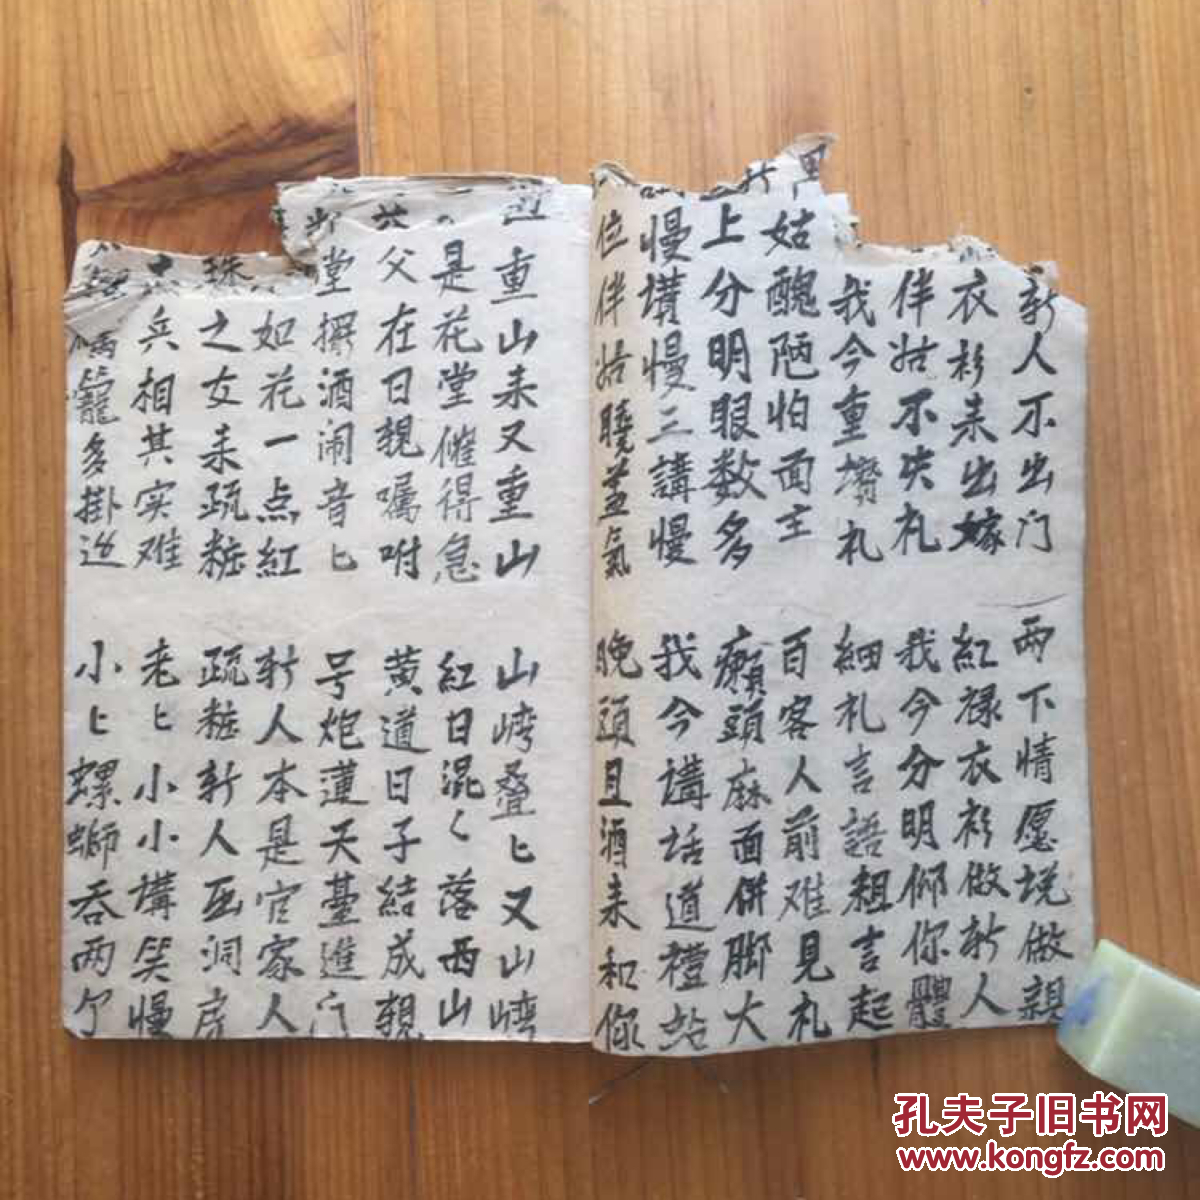 新人不出门 两下情愿说做親
衣衫来出嫁 紅禄衣衫做新人
伴姑不失礼 我今分明仰你體
我今重 礼 細礼言語粗言起
姑醜陋怕面主 百客人前难見礼
上分明眼数多 癩頭麻面併脚大
慢講慢三講慢 我今講话道禮
位伴姑 氣 晚頭且酒来和你
重山来又重山 山 叠匕又山
是花堂催得急 紅日混く落西山
父在日親嘱咐 黄道日子結成親
堂擺酒闹音匕 号炮蓮天臺進门
如花一点紅 新人本是官家人
之女来疏粧 疏粧新人 洞房
兵相其实难 老匕小小講笑慢
籠多掛 小匕螺螄吞两个
孔夫子旧书网
www.kongfz.com